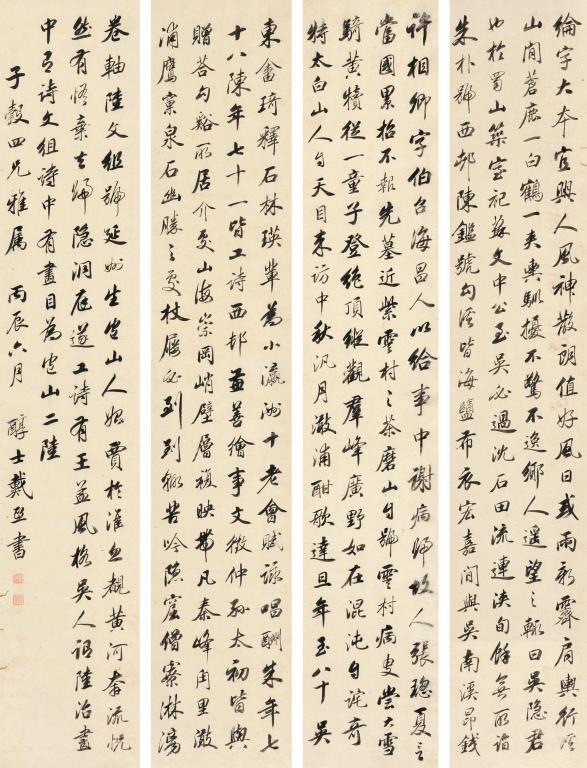 綸字大本宜興人風神散朗值好風日或雨新霽肩輿行溪
山間蒼鹿一白鶴一夾輿馴擾不驚不逸鄉人遙望之輒曰吳隱君
也於蜀山築室祀蘇文中公至吳必過沈石田流連浹旬餘無所詣
朱朴號西邨陳鑑號勾溪皆海鹽布衣宏嘉間與吳南溪昂錢
許相卿字伯台海昌人以給事中謝病歸故人張璁夏言
當國累招不報先墓近紫雲村之茶磨山自號雲村病叟嘗大雪
騎黃犢從一童子登絕頂縱觀群峰廣野如在混沌自詫奇
特太白山人自天目來訪中秋汎月澉浦酣歌達旦年至八十吳
東畬琦釋石林瑛輩為小瀛洲十老會賦詠唱酬朱年七
十八陳年七十一皆工詩西邨兼善繪事文徵仲孫太初皆與
贈答勾谿所居介交山海崇岡峭壁層複映帶凡秦峰周里澉
浦鷹窠泉石幽勝之處杖屨必到到輒苦吟隙窟僧寮淋漓
卷軸陸文組號延州生包山人始賈於淮忽覩黃河奔流恍
然有悟棄去歸隱洞庭遂工詩有王孟風格吳人語陸治畫
中有詩文組詩中有畫目為包山二陸
子穀四兄雅屬 丙辰六月 醇士戴熙書